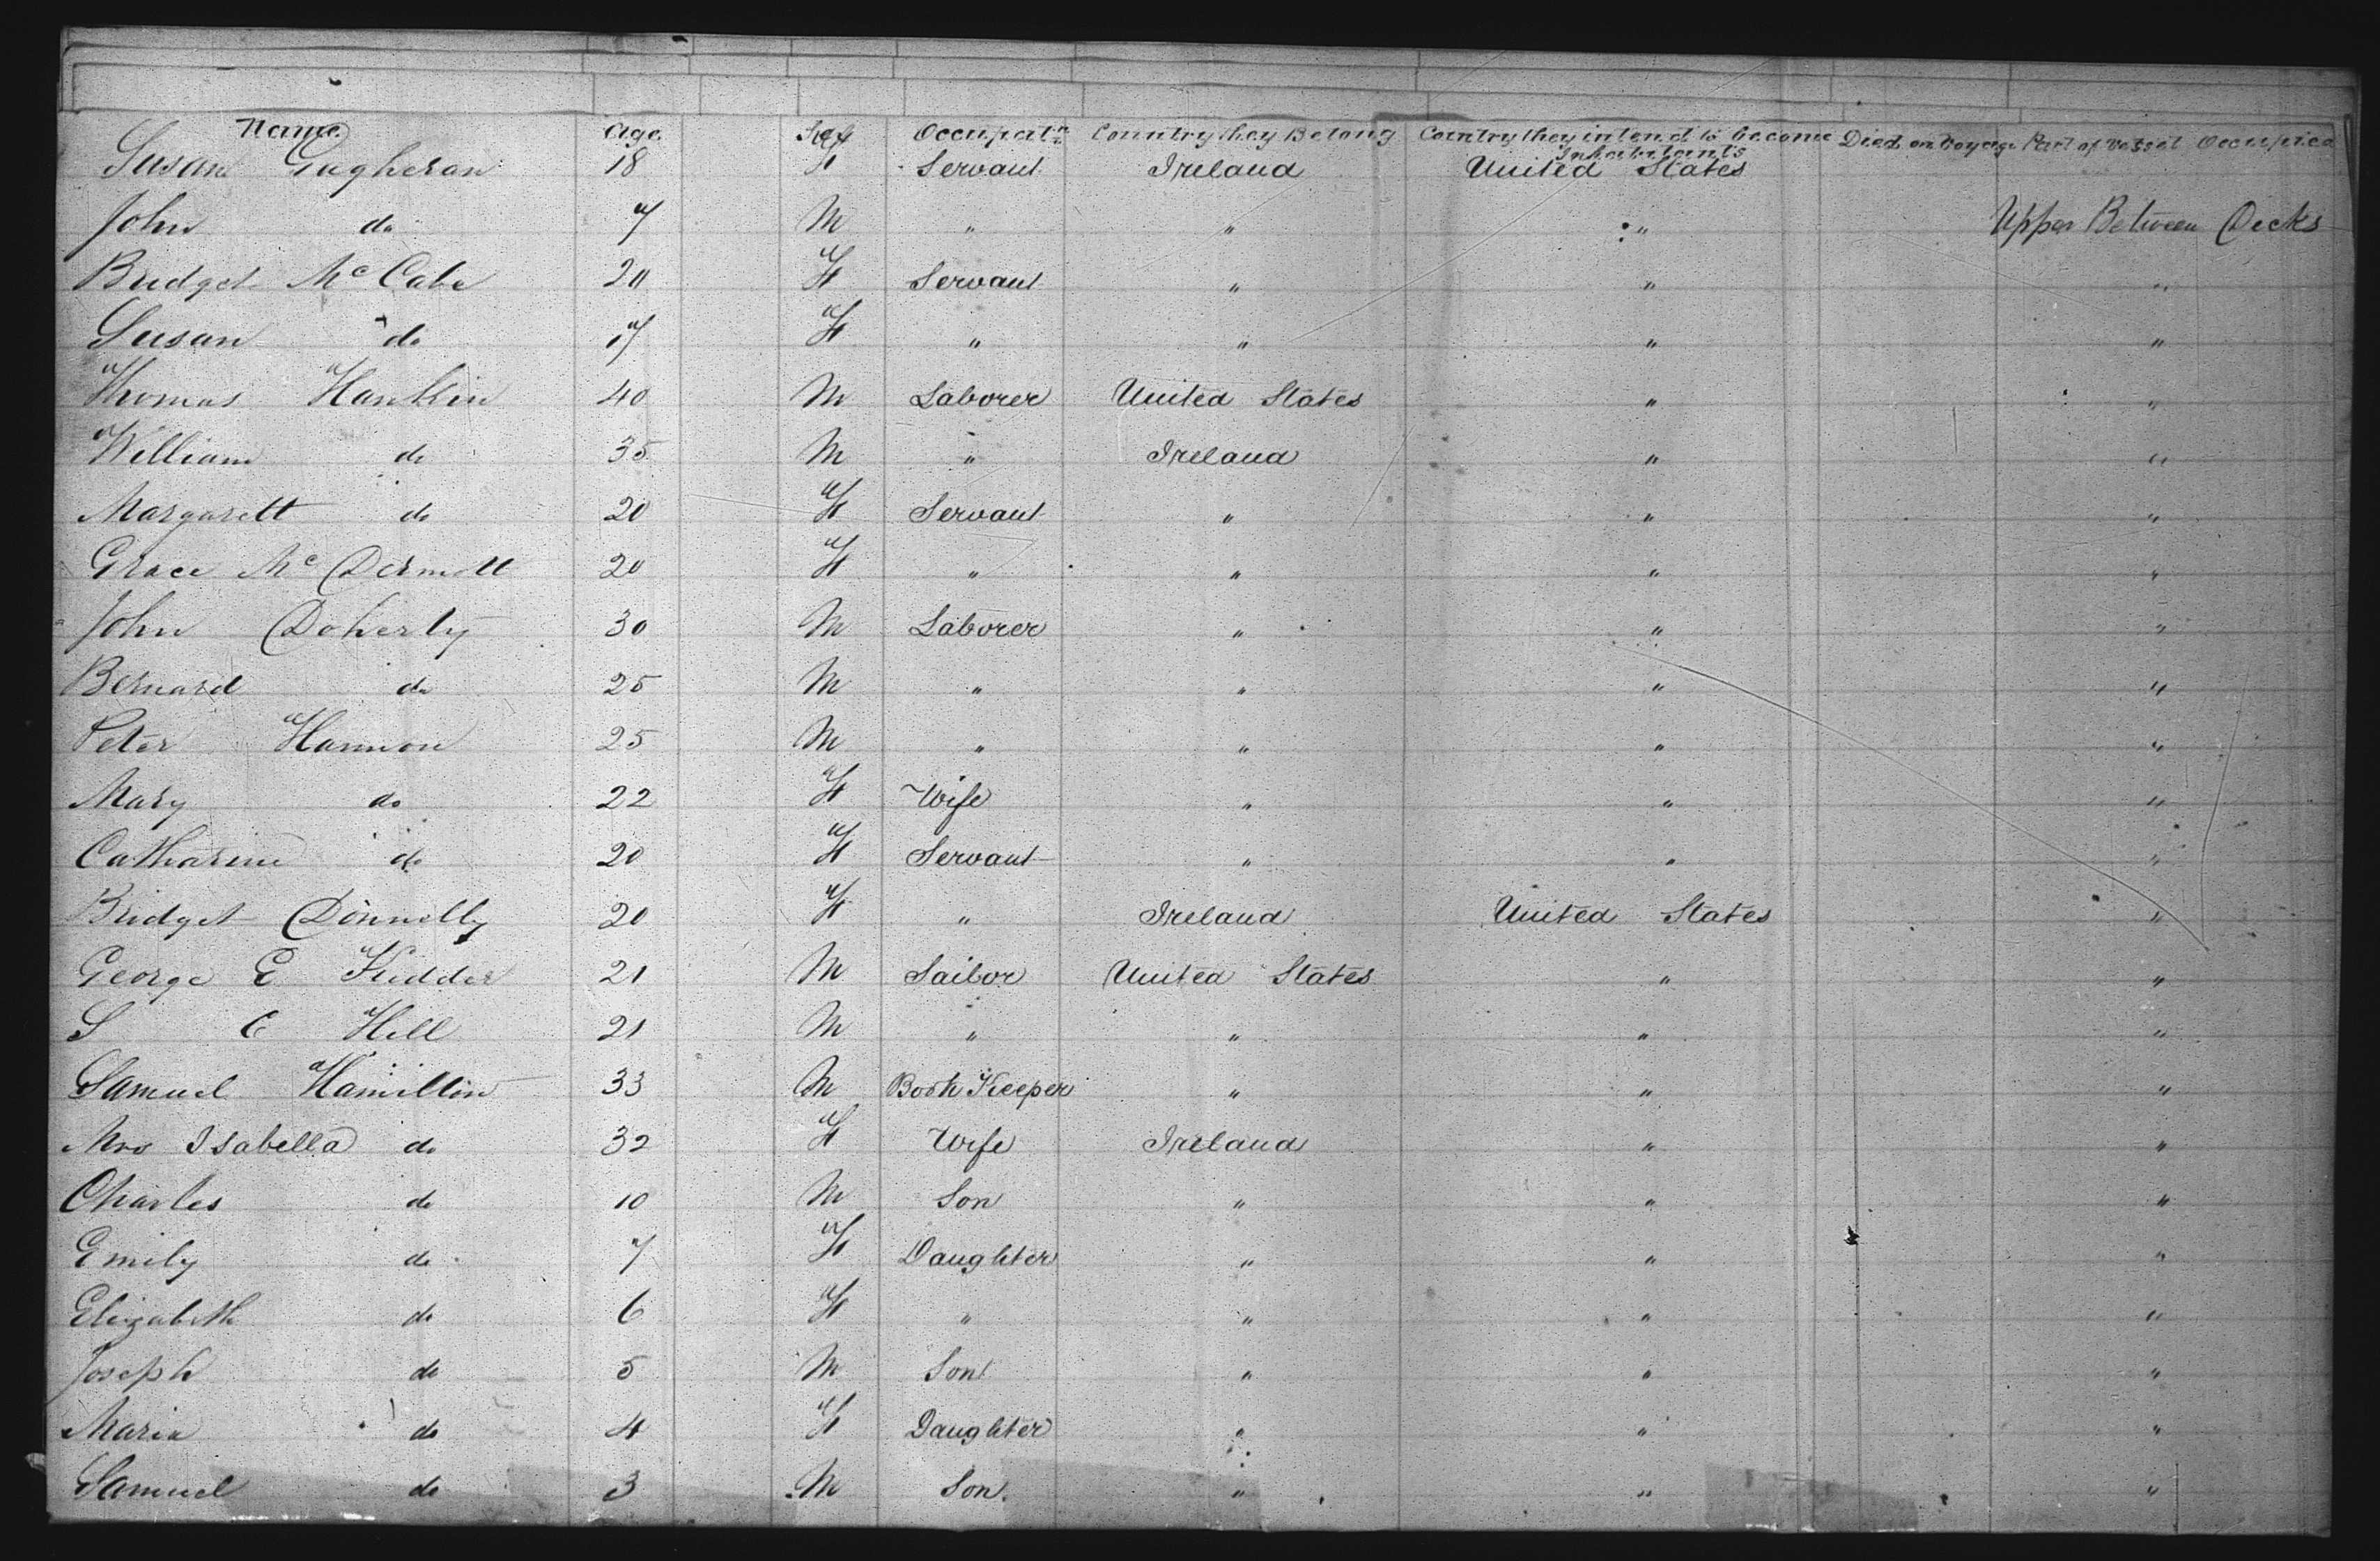 Name Age Sex Occupatn Country they Belong Country they intend to become Inhabitants Died on Voyage Part of Vessel Occupied
Susan Gagheran 18 F Servant Ireland United States
John do 7 M " " " Upper Between Decks
Bridget Mc Cabe 20 F Servant " " "
Susan do 17 F " " " "
Thomas Hankin 40 M Laborer United States " "
William do 35 M " Ireland " "
Margarett do 20 F Servant " " "
Grace Mc Dermott 20 F " " " "
John Doherty 30 M Laborer " " "
Bernard do 25 M " " " "
Peter Hannon 25 M " " " "
Mary do 22 F Wife " " "
Catharine do 20 F Servant " " "
Bridget Donnelly 20 F " Ireland United States "
George E Kidder 21 M Sailor United States " "
S C Hill 21 M " " " "
Samuel Hamilton 33 M Book Keeper " " "
Mrs Isabella do 32 F Wife Ireland " "
Charles do 10 M Son " " "
Emily do 7 F Daughter " " "
Elizabeth do 6 F " " " "
Joseph do 5 M Son " " "
Maria do 4 F Daughter " " "
Samuel do 3 M Son " " "